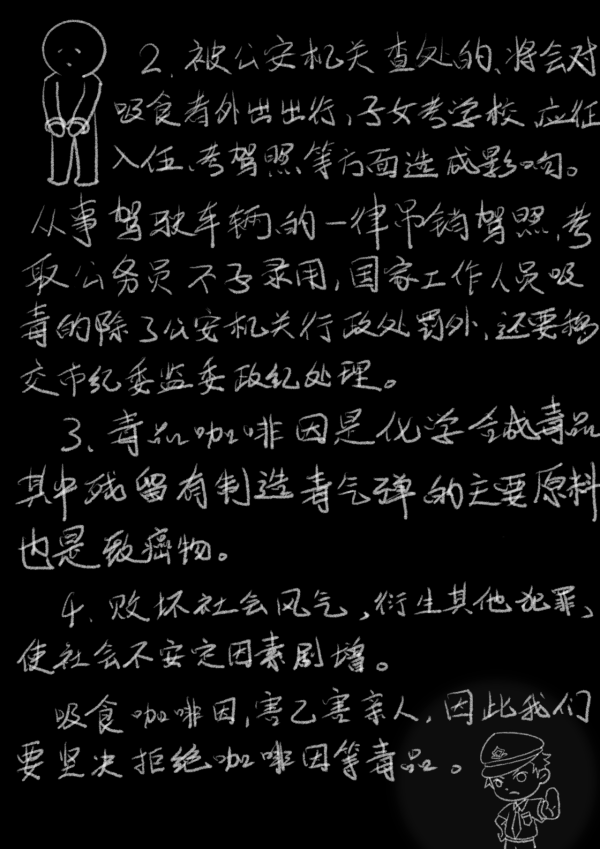 2、被公安机关查处的、将会对
吸食者外出出行,子女考学校、应征
入伍、考驾照等方面造成影响。
从事驾驶车辆的一律吊销驾照,考
取公务员不予录用,国家工作人员吸
毒的除了公安机关行政处罚外,还要移
交市纪委监委政纪处理。
3、毒品咖啡因是化学合成毒品
其中残留有制造毒气弹的主要原料
也是致癌物。
4、败坏社会风气,衍生其他犯罪,
使社会不安定因素剧增。
吸食咖啡因,害己害亲人,因此我们
要坚决拒绝咖啡因等毒品。